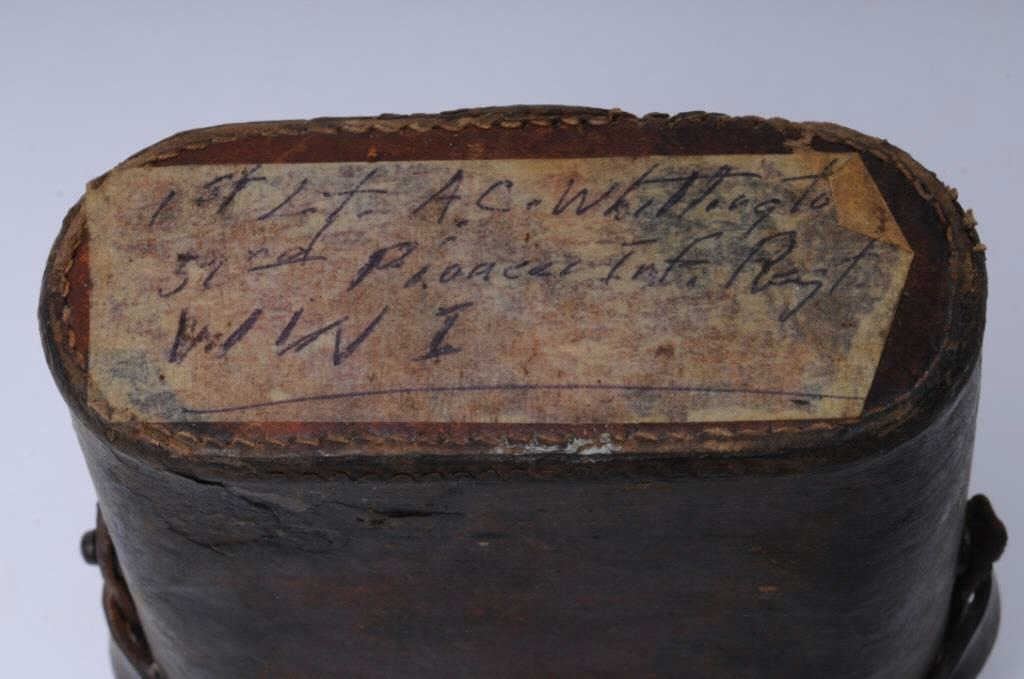 1st Lt. A.C. Whittington
52nd Pioneer Inf. Regt.
WW I